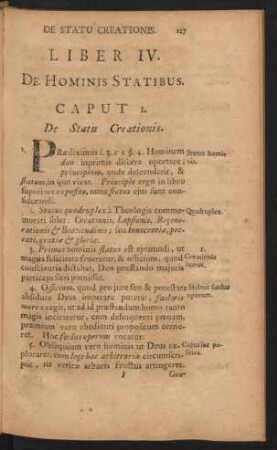 DE STATU CREATIONIS. 127
LIBER IV.
DE HOMINIS STATIBUS.
CAPUT I.
De Statu Creationis.
1. PRædiximus l. 3. c 1 §. 4. Hominem
duo inprimis discere oportere;
principium, unde descenderit, &
statum, in quo vivat. Principio ergo in libris
superioribus exposito, nunc status ejus sunt con-
siderandi.
Status hominis.
2. Status quadruplex à Theologis comme-
morari solet: Creationis, Lapsûnis, Regene-
rationis & Beatitudinis; seu Innocentiæ, pec-
cati, gratiæ & gloriæ.
Quadruplex.
3. Primus hominis status est ejusmodi, ut
magna felicitate frueretur, & officium, quod
conscientia dictabat, Deo præstando majoris
particeps fieri potuisset.
1.
Creationis
4. Officium, quod pro jure suo & potestate
absoluta Deus imperare poterat, fœderis
more exegit, ut ad id præstandum homo tanto
magis incitaretur, cum delinquenti pœnam,
præmium vero obedituri propositum cerne-
ret. Hoc fœdus operum vocatur.
Habuit fœdus
operum.
5. Obsequium vero hominis ut Deus ex-
ploraret, eum lege hac arbitraria circumscri-
psit, ne vetitæ arboris fructus attingeret.
I Gra-